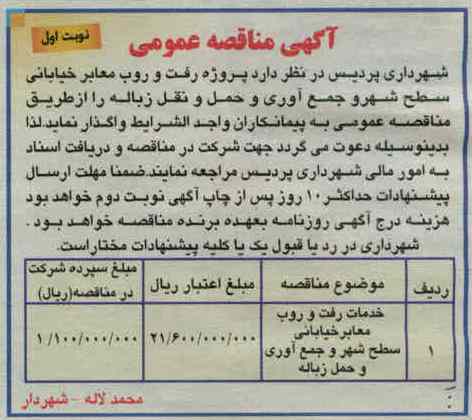 نوبت اول
آگهی مناقصه عمومی
شهرداری پردیس در نظر دارد پروژه رفت و روب معابر خیابانی
سطح شهرو جمع آوری و حمل و نقل زباله را ازطریق
مناقصه عمومی به پیمانکاران واجد الشرایط واگذار نماید.لذا
بدینوسیله دعوت می گردد جهت شرکت در مناقصه و دریافت اسناد
به امور مالی شهرداری پردیس مراجعه نمایند.ضمنا مهلت ارسال
پیشنهادات حداکثر ۱۰ روز پس از چاپ آگهی نوبت دوم خواهد بود
هزینه درج آگهی روزنامه بعهده برنده مناقصه خواهد بود .
شهرداری در رد یا قبول یک یا کلیه پیشنهادات مختاراست.
ردیف
موضوع مناقصه
مبلغ اعتبار ریال
مبلغ سپرده شرکت
در مناقصه(ریال)
۱
خدمات رفت و روب
معابرخیابانی
سطح شهر و جمع آوری
و حمل زباله
۲۱/۶۰۰/۰۰۰/۰۰۰
۱/۱۰۰/۰۰۰/۰۰۰
محمد لاله - شهردار